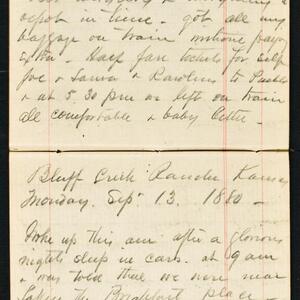 depot in time - got all my
baggage on train without pay
extra - Half fare tickets for self
Joe & & Karolins to
& at 5.30 pm we left on train
all comfortable & baby better.
Bluff Creek Ranch, Kansas
Monday. Sept 13. 1880.
Woke up this am after a glorious
nights sleep in cars. at 9 am
& was told that we were near
the Breakfast place